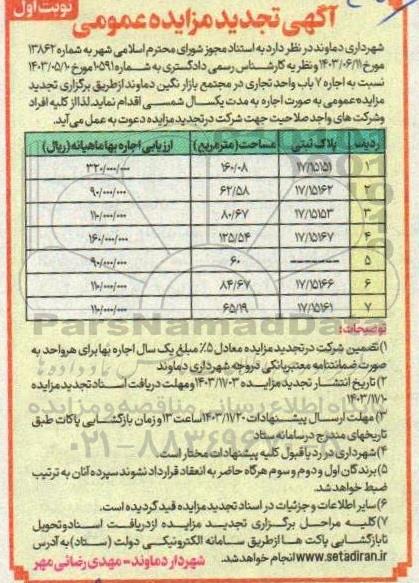 نوبت اول
آگهی تجدید مزایده عمومی
شهرداری دماوند در نظر دارد به استناد مجوز شورای محترم اسلامی شهر به شماره ۱۳۸۶۲
مورخ ۱۴۰۳/۰۶/۱۱ و نظریه کارشناس رسمی دادگستری به شماره ۱۰۵۹۱ مورخ ۱۴۰۳/۰۵/۱۰
نسبت به اجاره ۷ باب واحد تجاری در مجتمع بازار نگین دماوند از طریق برگزاری تجدید
مزایده عمومی به صورت اجاره به مدت یکسال شمسی اقدام نماید. لذا از کلیه افراد
و شرکت های واجد صلاحیت جهت شرکت در تجدید مزایده دعوت به عمل می آید.
ردیف پلاک ثبتی مساحت (مترمربع) ارزیابی اجاره بها ماهیانه (ریال)
۱ ۱۷/۱۵۱۵۱ ۱۶۰/۰۸ ۳۲۰/۰۰۰/۰۰۰
۲ ۱۷/۱۵۱۶۲ ۶۲/۵۸ ۹۰/۰۰۰/۰۰۰
۳ ۱۷/۱۵۱۵۳ ۸۰/۶۷ ۱۱۰/۰۰۰/۰۰۰
۴ ۱۷/۱۵۱۶۷ ۱۳۵/۵۴ ۱۶۰/۰۰۰/۰۰۰
۵ ------- ۶۰ ۹۰/۰۰۰/۰۰۰
۶ ۱۷/۱۵۱۶۶ ۸۴/۶۷ ۱۱۰/۰۰۰/۰۰۰
۷ ۱۷/۱۵۱۶۱ ۶۵/۱۹ ۱۱۰/۰۰۰/۰۰۰
ParsNamadData
توضیحات:
۱) تضمین شرکت در تجدید مزایده معادل ۵٪ مبلغ یک سال اجاره بها برای هر واحد به
صورت ضمانتنامه معتبر بانکی در وجه شهرداری دماوند
۲) تاریخ انتشار تجدید مزایده ۱۴۰۳/۱۱/۰۳ و مهلت دریافت اسناد تجدید مزایده
۱۴۰۳/۱۱/۱۰
۳) مهلت ارسال پیشنهادات ۱۴۰۳/۱۱/۲۰ ساعت ۱۳ و زمان بازگشایی پاکات طبق
تاریخهای مندرج در سامانه ستاد
۴) شهرداری در رد یا قبول کلیه پیشنهادات مختار است.
۵) برندگان اول و دوم و سوم هرگاه حاضر به انعقاد قرارداد نشوند سپرده آنان به ترتیب
ضبط خواهد شد.
۶) سایر اطلاعات و جزئیات در اسناد تجدید مزایده قید گردیده است.
۷) کلیه مراحل برگزاری تجدید مزایده از دریافت اسناد و تحویل
تا بازگشایی پاکت ها از طریق سامانه الکترونیکی دولت (ستاد) به آدرس
www.setadiran.ir انجام خواهد شد.
شهردار دماوند - مهدی رضائی مهر